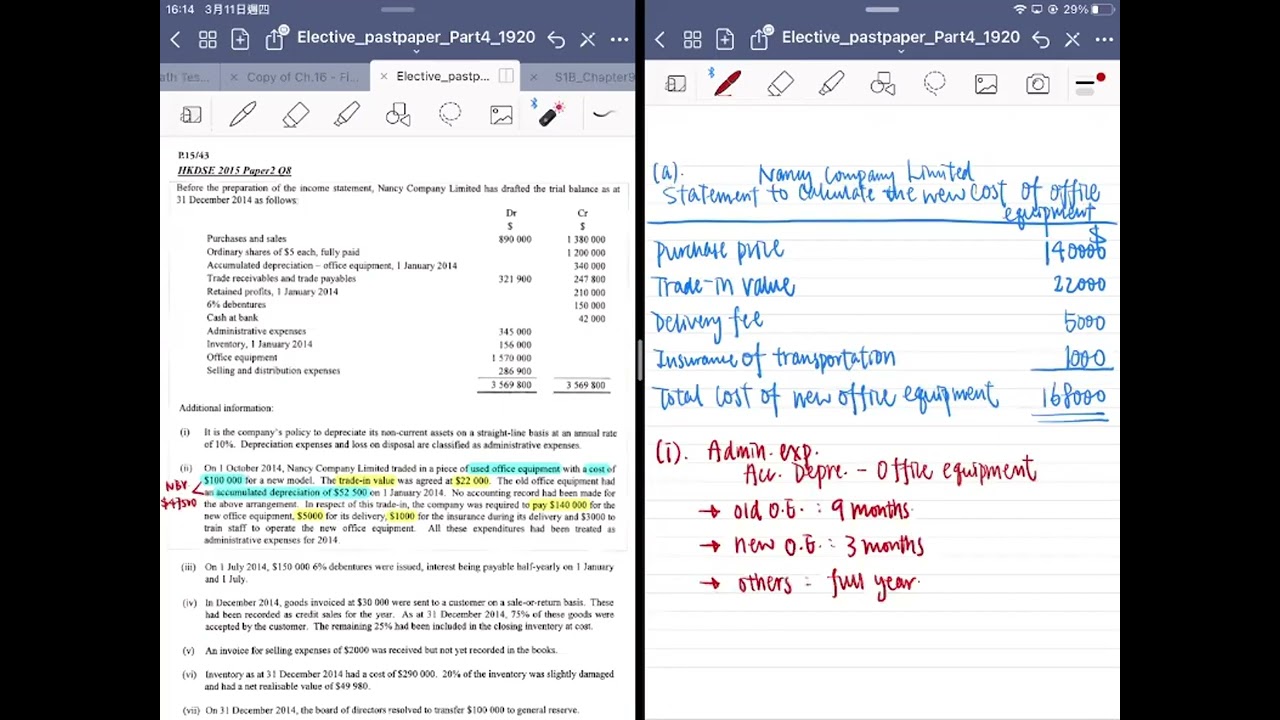 16:14 3月11日週四
29%
Elective_pastpaper_Part4_1920
Elective_pastpaper_Part4_1920
ath Tes...
Copy of Ch.16 - Fi...
Elective_pastp...
S1B_Chapter9
P.15/43
HKDSE 2015 Paper2 Q8
Before the preparation of the income statement, Nancy Company Limited has drafted the trial balance as at
31 December 2014 as follows:
Dr Cr
$ $
Purchases and sales 890 000 1 380 000
Ordinary shares of $5 each, fully paid 1 200 000
Accumulated depreciation – office equipment, 1 January 2014 340 000
Trade receivables and trade payables 321 900 247 800
Retained profits, 1 January 2014 210 000
6% debentures 150 000
Cash at bank 42 000
Administrative expenses 345 000
Inventory, 1 January 2014 156 000
Office equipment 1 570 000
Selling and distribution expenses 286 900
3 569 800 3 569 800
Additional information:
(i) It is the company's policy to depreciate its non-current assets on a straight-line basis at an annual rate
of 10%. Depreciation expenses and loss on disposal are classified as administrative expenses.
(ii) On 1 October 2014, Nancy Company Limited traded in a piece of used office equipment with a cost of
$100 000 for a new model. The trade-in value was agreed at $22 000. The old office equipment had
an accumulated depreciation of $52 500 on 1 January 2014. No accounting record had been made for
the above arrangement. In respect of this trade-in, the company was required to pay $140 000 for the
new office equipment, $5000 for its delivery, $1000 for the insurance during its delivery and $3000 to
train staff to operate the new office equipment. All these expenditures had been treated as
administrative expenses for 2014.
NBV
$47500
(iii) On 1 July 2014, $150 000 6% debentures were issued, interest being payable half-yearly on 1 January
and 1 July.
(iv) In December 2014, goods invoiced at $30 000 were sent to a customer on a sale-or-return basis. These
had been recorded as credit sales for the year. As at 31 December 2014, 75% of these goods were
accepted by the customer. The remaining 25% had been included in the closing inventory at cost.
(v) An invoice for selling expenses of $2000 was received but not yet recorded in the books.
(vi) Inventory as at 31 December 2014 had a cost of $290 000. 20% of the inventory was slightly damaged
and had a net realisable value of $49 980.
(vii) On 31 December 2014, the board of directors resolved to transfer $100 000 to general reserve.
(a). Nancy Company Limited
Statement to calculate the new cost of office
equipment
$
Purchase price 140000
Trade-in value 22000
Delivery fee 5000
Insurance of transportation 1000
Total cost of new office equipment 168000
(i). Admin. exp.
Acc. Depre. - Office equipment
→ old O.E. : 9 months.
→ new O.E. : 3 months
→ others : full year.